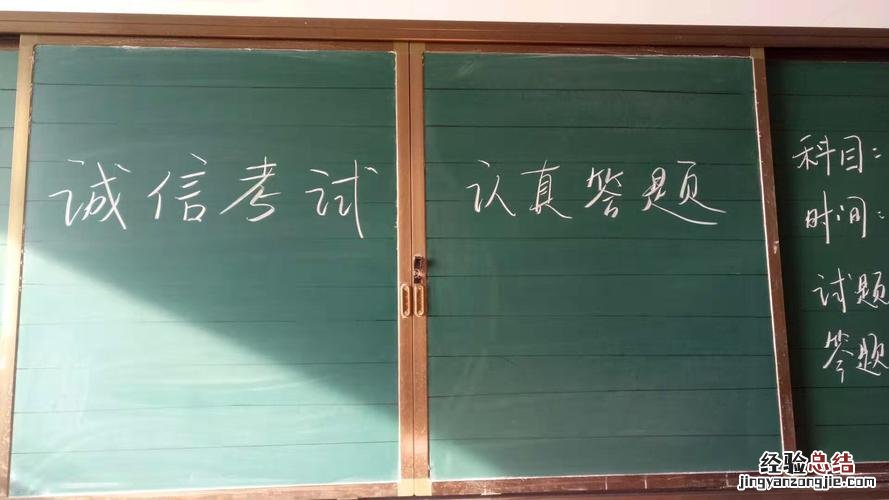 诚信考试
认真答题
科目：
时间：
试题
答题
经验总结
jingyanzongjie.com